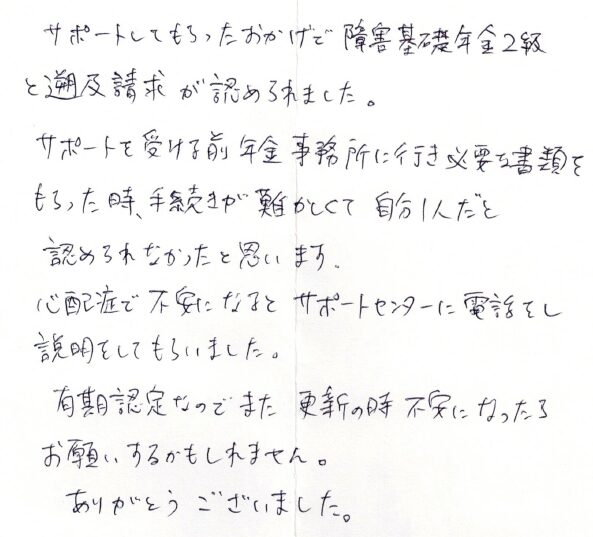 サポートしてもらったおかげで障害基礎年金2級
と遡及請求が認められました。
サポートを受ける前年金事務所に行き必要な書類を
もらった時、手続きが難かしくて自分1人だと
認められなかったと思います。
心配症で不安になるとサポートセンターに電話をし
説明をしてもらいました。
有期認定なのでまた更新の時不安になったら
お願いするかもしれません。
ありがとうございました。